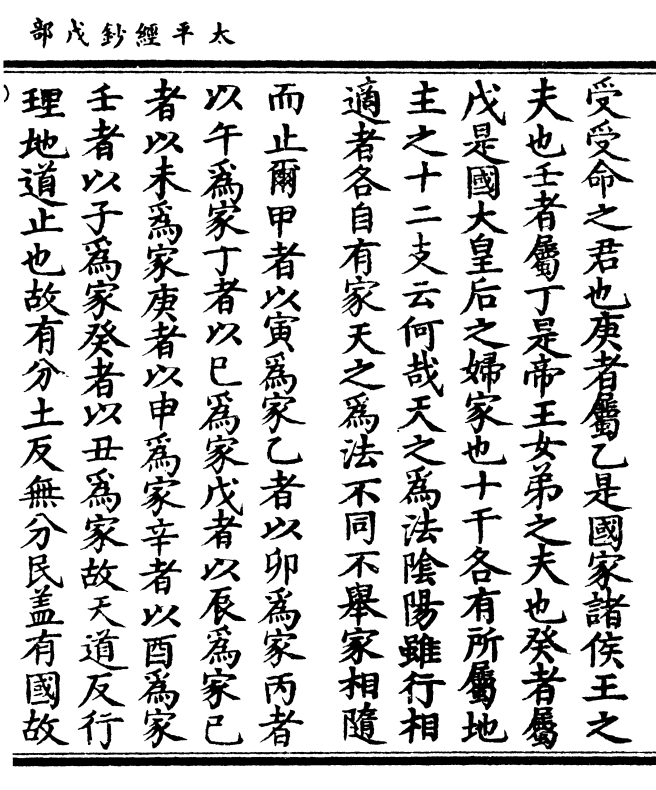 太平經鈔戊部
受受命之君也庚者屬乙是國家諸侯王之
夫也壬者屬丁是帝王女弟之夫也癸者屬
戊是國大皇后之婦家也十干各有所屬地
主之十二支云何哉天之爲法陰陽雖行相
適者各自有家天之爲法不同不舉家相隨
而止爾甲者以寅爲家乙者以卯爲家丙者
以午爲家丁者以巳爲家戊者以辰爲家己
者以未爲家庚者以申爲家辛者以酉爲家
壬者以子爲家癸者以丑爲家故天道反行
理地道止也故有分土反無分民盖有國故